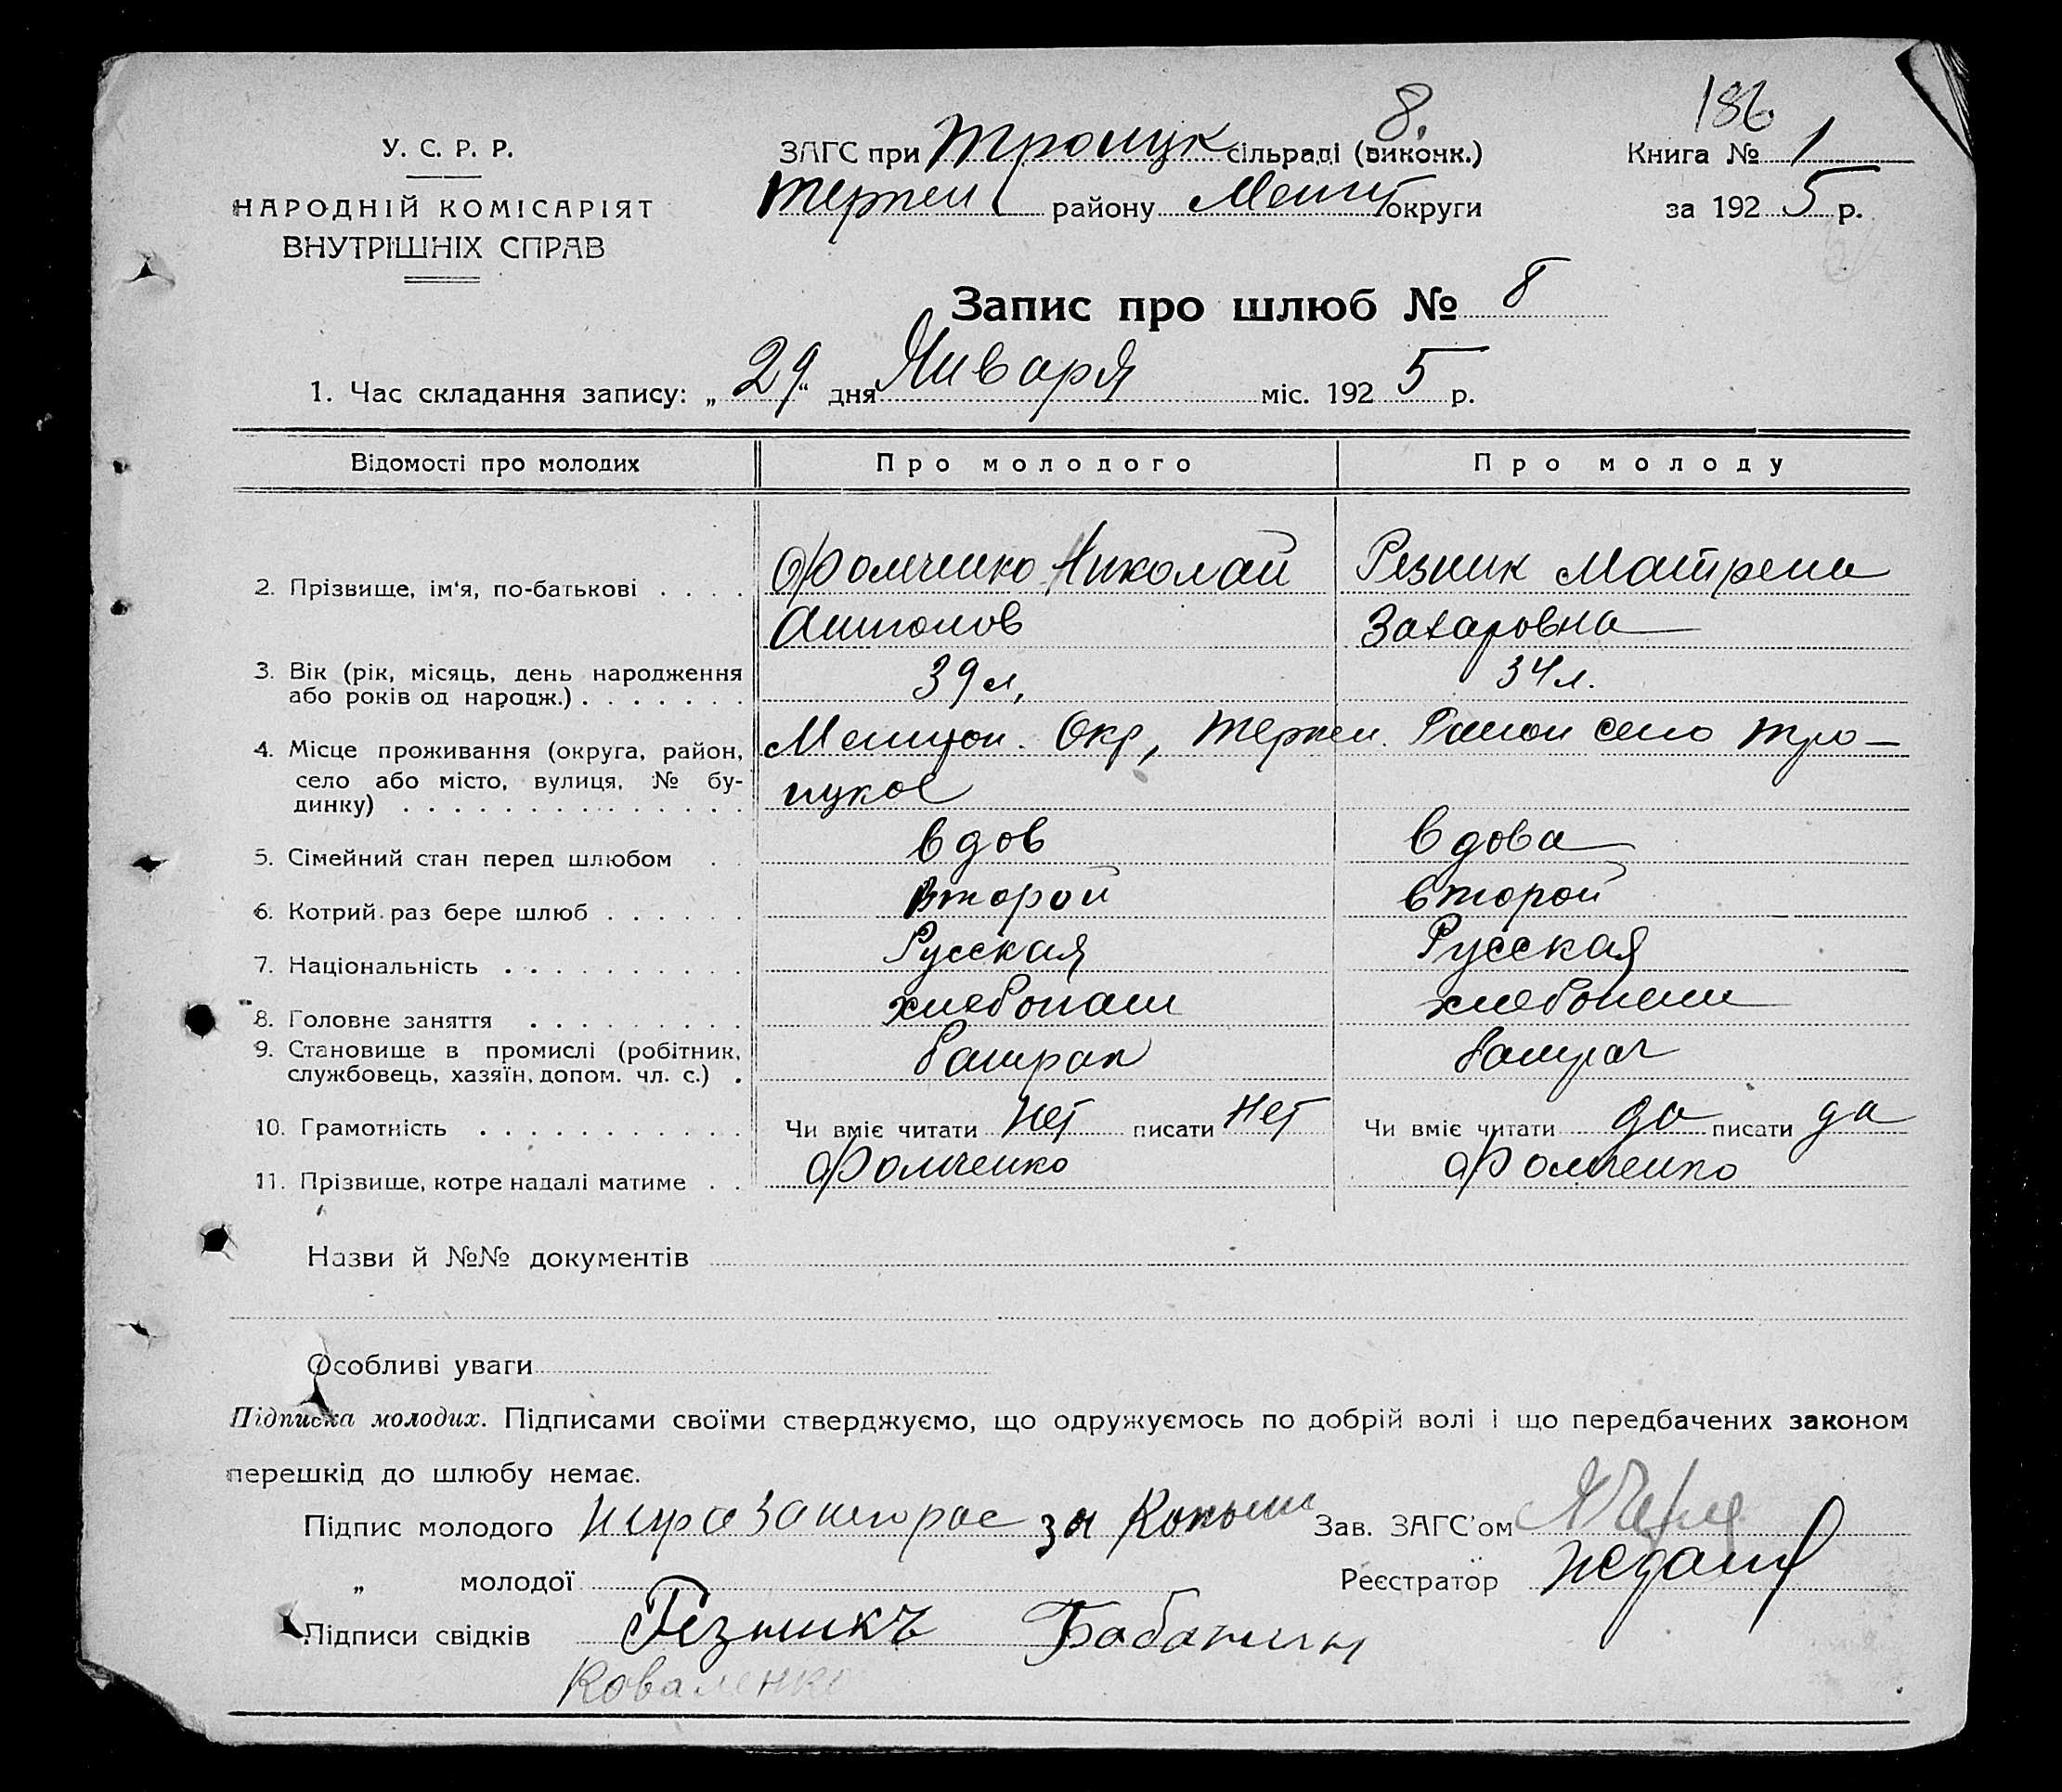 186
8.
У. С. Р. Р.
ЗАГС при Троицк сільраді (виконк.)
Книга № 1
НАРОДНІЙ КОМІСАРІЯТ
Терпен району Мелит округи
за 1925 р.
ВНУТРІШНІХ СПРАВ
Запис про шлюб № 8
1. Час складання запису: „29“ дня Января міс. 1925 р.
Відомості про молодих
Про молодого
Про молоду
2. Прізвище, ім'я, по-батькові . . . .
Фомченко Николай
Резник Матрена
Антонов
Захаровна
3. Вік (рік, місяць, день народження
або років од народж.) . . . . . . .
39 л.
34 л.
4. Місце проживання (округа, район,
село або місто, вулиця, № бу-
динку) . . . . . . . . . . . . . .
Мелитоп. Окр, Терпен. Раион село Тро-
ицкое
5. Сімейний стан перед шлюбом . .
вдов
вдова
6. Котрий раз бере шлюб . . . . . .
второй
второй
7. Національність . . . . . . . . . .
Русская
Русская
8. Головне заняття . . . . . . . . .
хлебопаш
хлебопаш
9. Становище в промислі (робітник,
службовець, хазяїн, допом. чл. с.) .
батрак
батрач
10. Грамотність . . . . . . . . . . .
Чи вміє читати нет писати нет
Чи вміє читати да писати да
11. Прізвище, котре надалі матиме . .
Фомченко
Фомченко
Назви й №№ документів
Особливі уваги
Підписка молодих. Підписами своїми стверджуємо, що одружуємось по добрій волі і що передбачених законом
перешкід до шлюбу немає.
Підпис молодого за
Зав. ЗАГС'ом
„ молодої
Реєстратор
Підписи свідків Резникъ
Коваленко